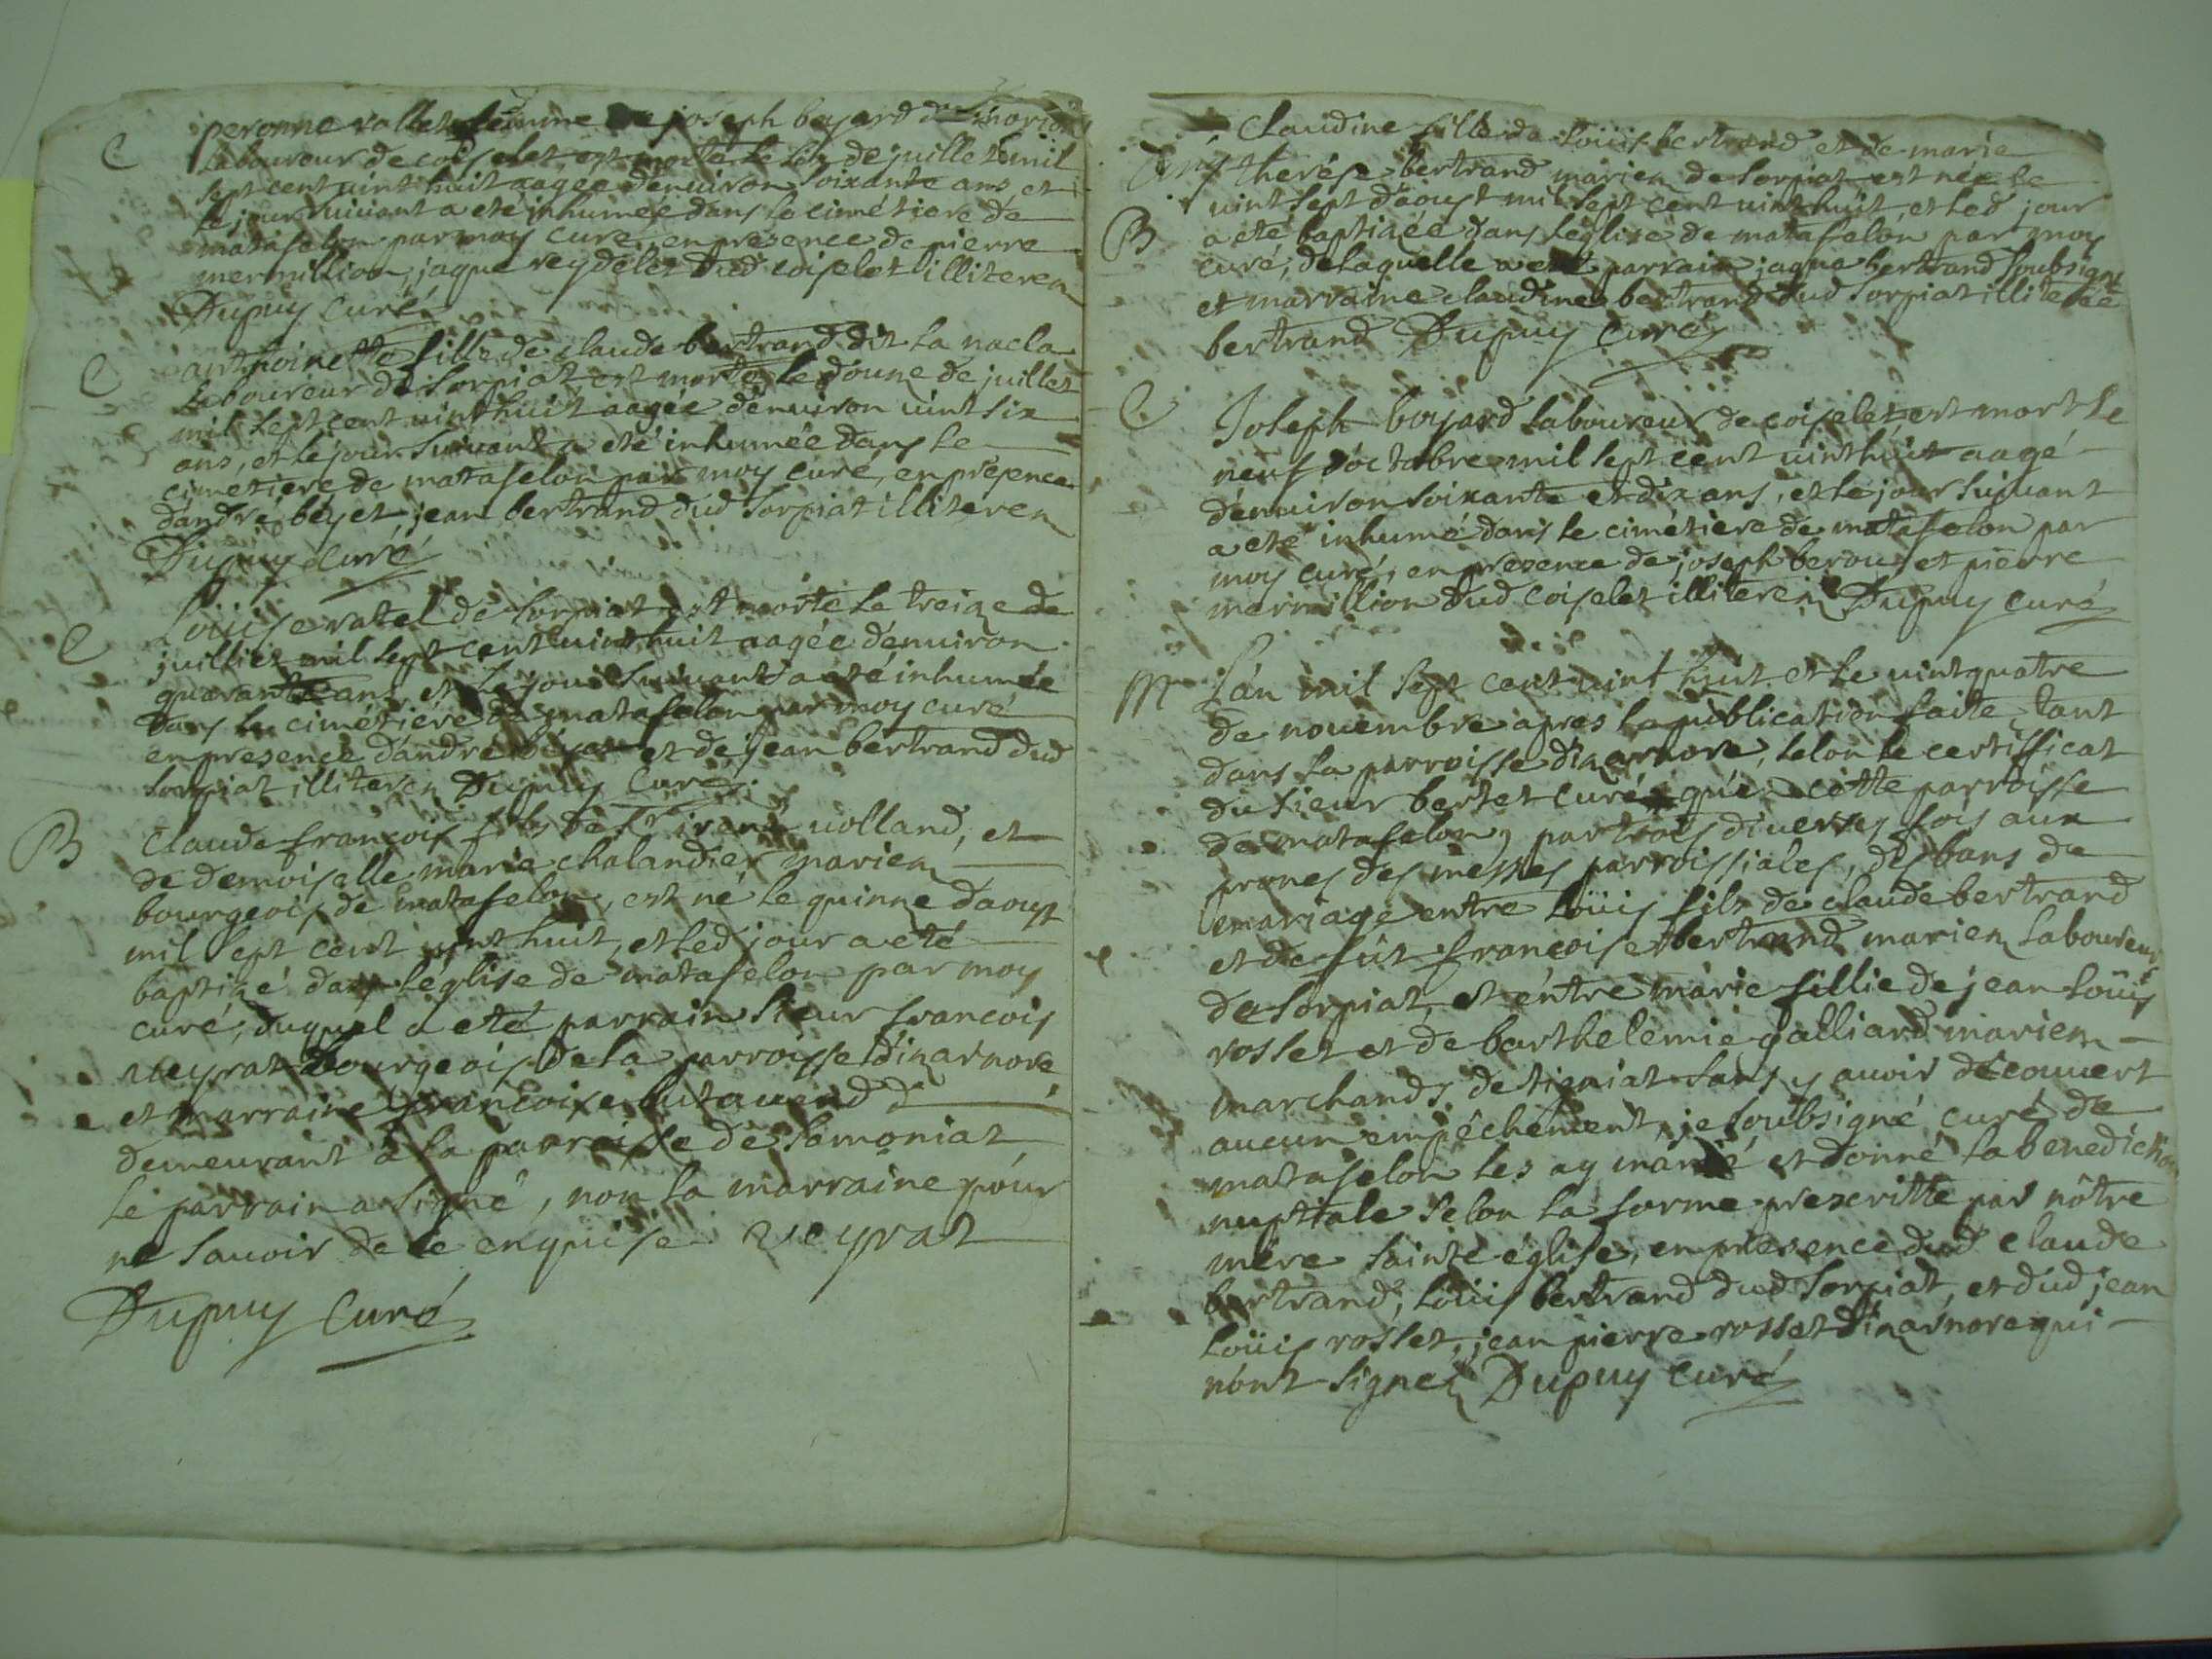 C
peronne vallet femme joseph bejard
laboureur de coiselet, est morte le six de juillet mil
sept cent vint huit aagée d'environ soixante ans et
le jour suivant a eté inhumée dans le cimétiere de
matafelon par moy curé, en presence de pierre
mermillion, jaque reydelet dud coiselet illiterez
Dupuy curé
C
anthoinette fille de claude bertrand dit la nacla
laboureur de sorpiat est morte le doune de juillet
mil sept cent vint huit aagée d'environ vint six
ans, et le jour suivant a eté inhumée dans le
cimetiere de matafelon par moy curé, en présence
d'andré beyet, jean bertrand dud sorpiat illiterez
Dupuy curé
C
Loüise vatel de sorpiat est morte le treize de
juilliet mil sept cent vint huit aagée d'environ
quarante ans, et le jour suivant a eté inhumée
dans le cimétiére de matafelon par moy curé
en presence d'andré et de jean bertrand dud
sorpiat illiterez Dupuy Curé
B
Claude françois fils de Sr irené volland, et
de demoiselle marie chalandier mariez
bourgeois de matafelon, est né le quinne d'aoust
mil sept cent vint huit, et led jour a eté
baptizé dans l'église de matafelon par moy
curé, duquel a eté parrain sieur francois
veyrat bourgeois de la parroisse d'izarnore
et marraine françoise
demeurant à la parroisse de samoniat
le parrain a signé, non la marraine pour
ne savoir de ce enquise veyrat
Dupuy Curé
Claudine fille de Loüis bertrand et de marie
therése bertrand mariez de sorpiat est née le
vint sept d'aoust mil sept cent vint huit, et led jour
B
a eté baptizée dans l'église de matafelon par moy
curé, de laquelle a eté parrain jaque bertrand soubsigné
et marraine claudine bertrand dud sorpiat illiterée
bertrand Dupuy Curé
C
Joseph bojard laboureur de coiselet, est mort le
neuf d'octobre mil sept cent vint huit aagé
d'environ soixante et dix ans, et le jour suivant
a eté inhumé dans le cimétiere de matafelon par
moy curé, en presence de joseph berou, et pierre
mermillion dud coiselet illiterez Dupuy curé
M
L'an mil sept cent vint huit et le vint quatre
de novembre apres la publication faite, tant
dans la parroisse d'izarnore, selon le certifficat
du sieur bertet curé, qu'en cette parroisse
de matafelon, par trois diverses fois aux
prones des messes parroissiales, des bans de
mariage entre Loüis fils de claude bertrand
et de fût françoise bertrand mariez laboureurs
de sorpiat, et entre marie fillie de jean Loüis
rosset et de barthelemie galliard mariez
marchands de tigniat sans y avoir découvert
aucun empêchement, je soubsigné curé de
matafelon les ay marié et donné la benediction
nuptiale selon la forme prescritte par nôtre
mére sainte église, en presence dud claude
bertrand, Loüis bertrand dud sorpiat, et dud jean
Loüis rosset, jean pierre rosset d'izarnore qui
n'ont signé Dupuy curé